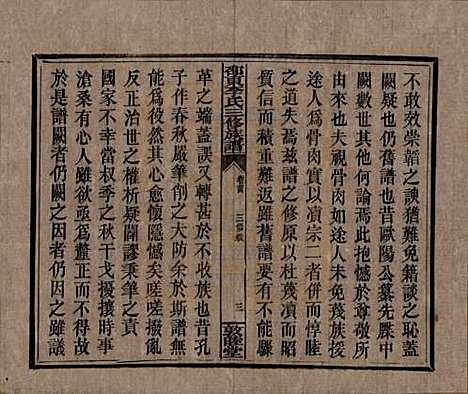 不敢效崇韜之諛猶難免籍談之恥蓋
闕疑也仍舊譜也昔歐陽公纂先牒中
闕數世其他何論焉此抱憾於尊敬所
由來也夫視骨肉如途人未免恝然視
途人爲骨肉實以瀆宗二者併而惇睦
之道失焉兹譜之修原以杜蔑瀆而昭
質信而積重難返雖舊譜要有不能驟
衡東李氏三修族譜
卷首
三修敘
三
敦睦堂
革之端蓋誤又轉甚於不收族也昔孔
子作春秋嚴華削之大防余於斯譜無
能爲役然其忠憤懷隱憾矣嗟嗟撥亂
反正治世之權析疑闢謬秉筆之責
國家不幸當叔季干戈擾攘時事
滄桑有心人雖欲亟爲釐正而不得故
於是譜闕者仍闕之因者仍因之雖議